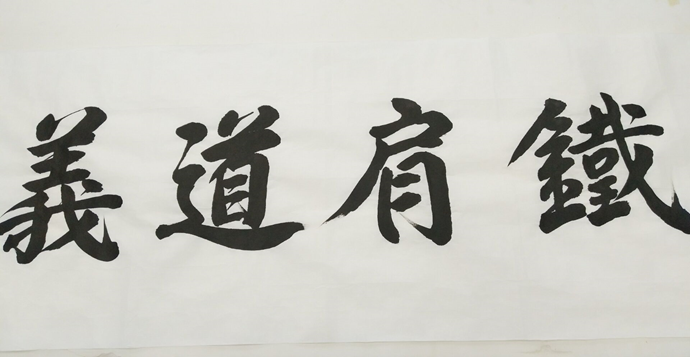 鐵肩道義